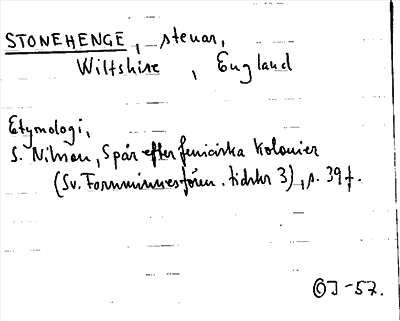 STONEHENGE, stenar,
Wiltshire, England
Etymologi,
S. Nilsson, Spår efter feniciska Kolonier
(Sv. Fornminnesfören. tidskr 3), s. 39 f.
OJ-57.